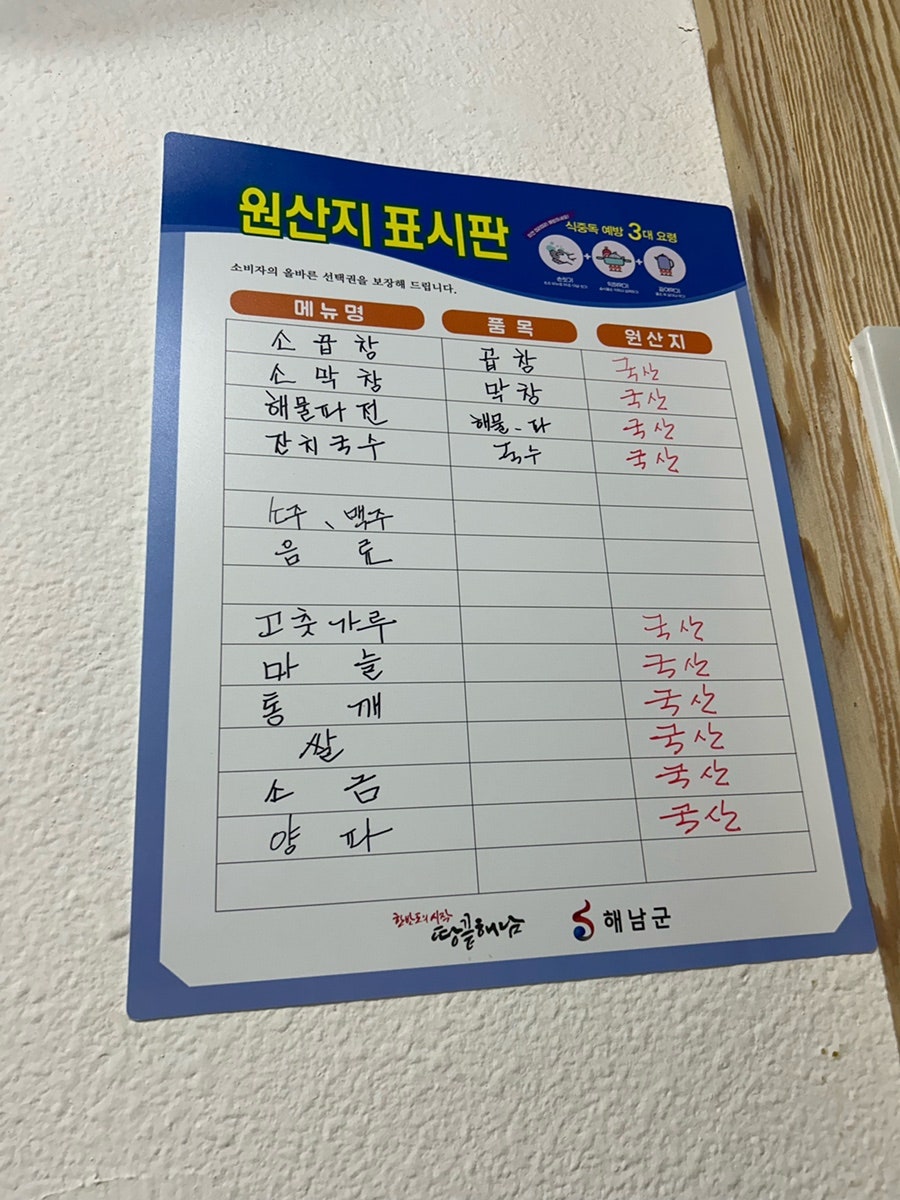 원산지 표시판
식중독 예방 3대 요령
손씻기 익혀먹기 끓여먹기
소비자의 올바른 선택권을 보장해 드립니다.
메뉴명 품목 원산지
소곱창 곱창 국산
소막창 막창 국산
해물파전 해물-파 국산
잔치국수 국수 국산
소주、맥주
음료
고춧가루 국산
마늘 국산
통깨 국산
쌀 국산
소금 국산
양파 국산
한반도의 시작
땅끝해남 해남군